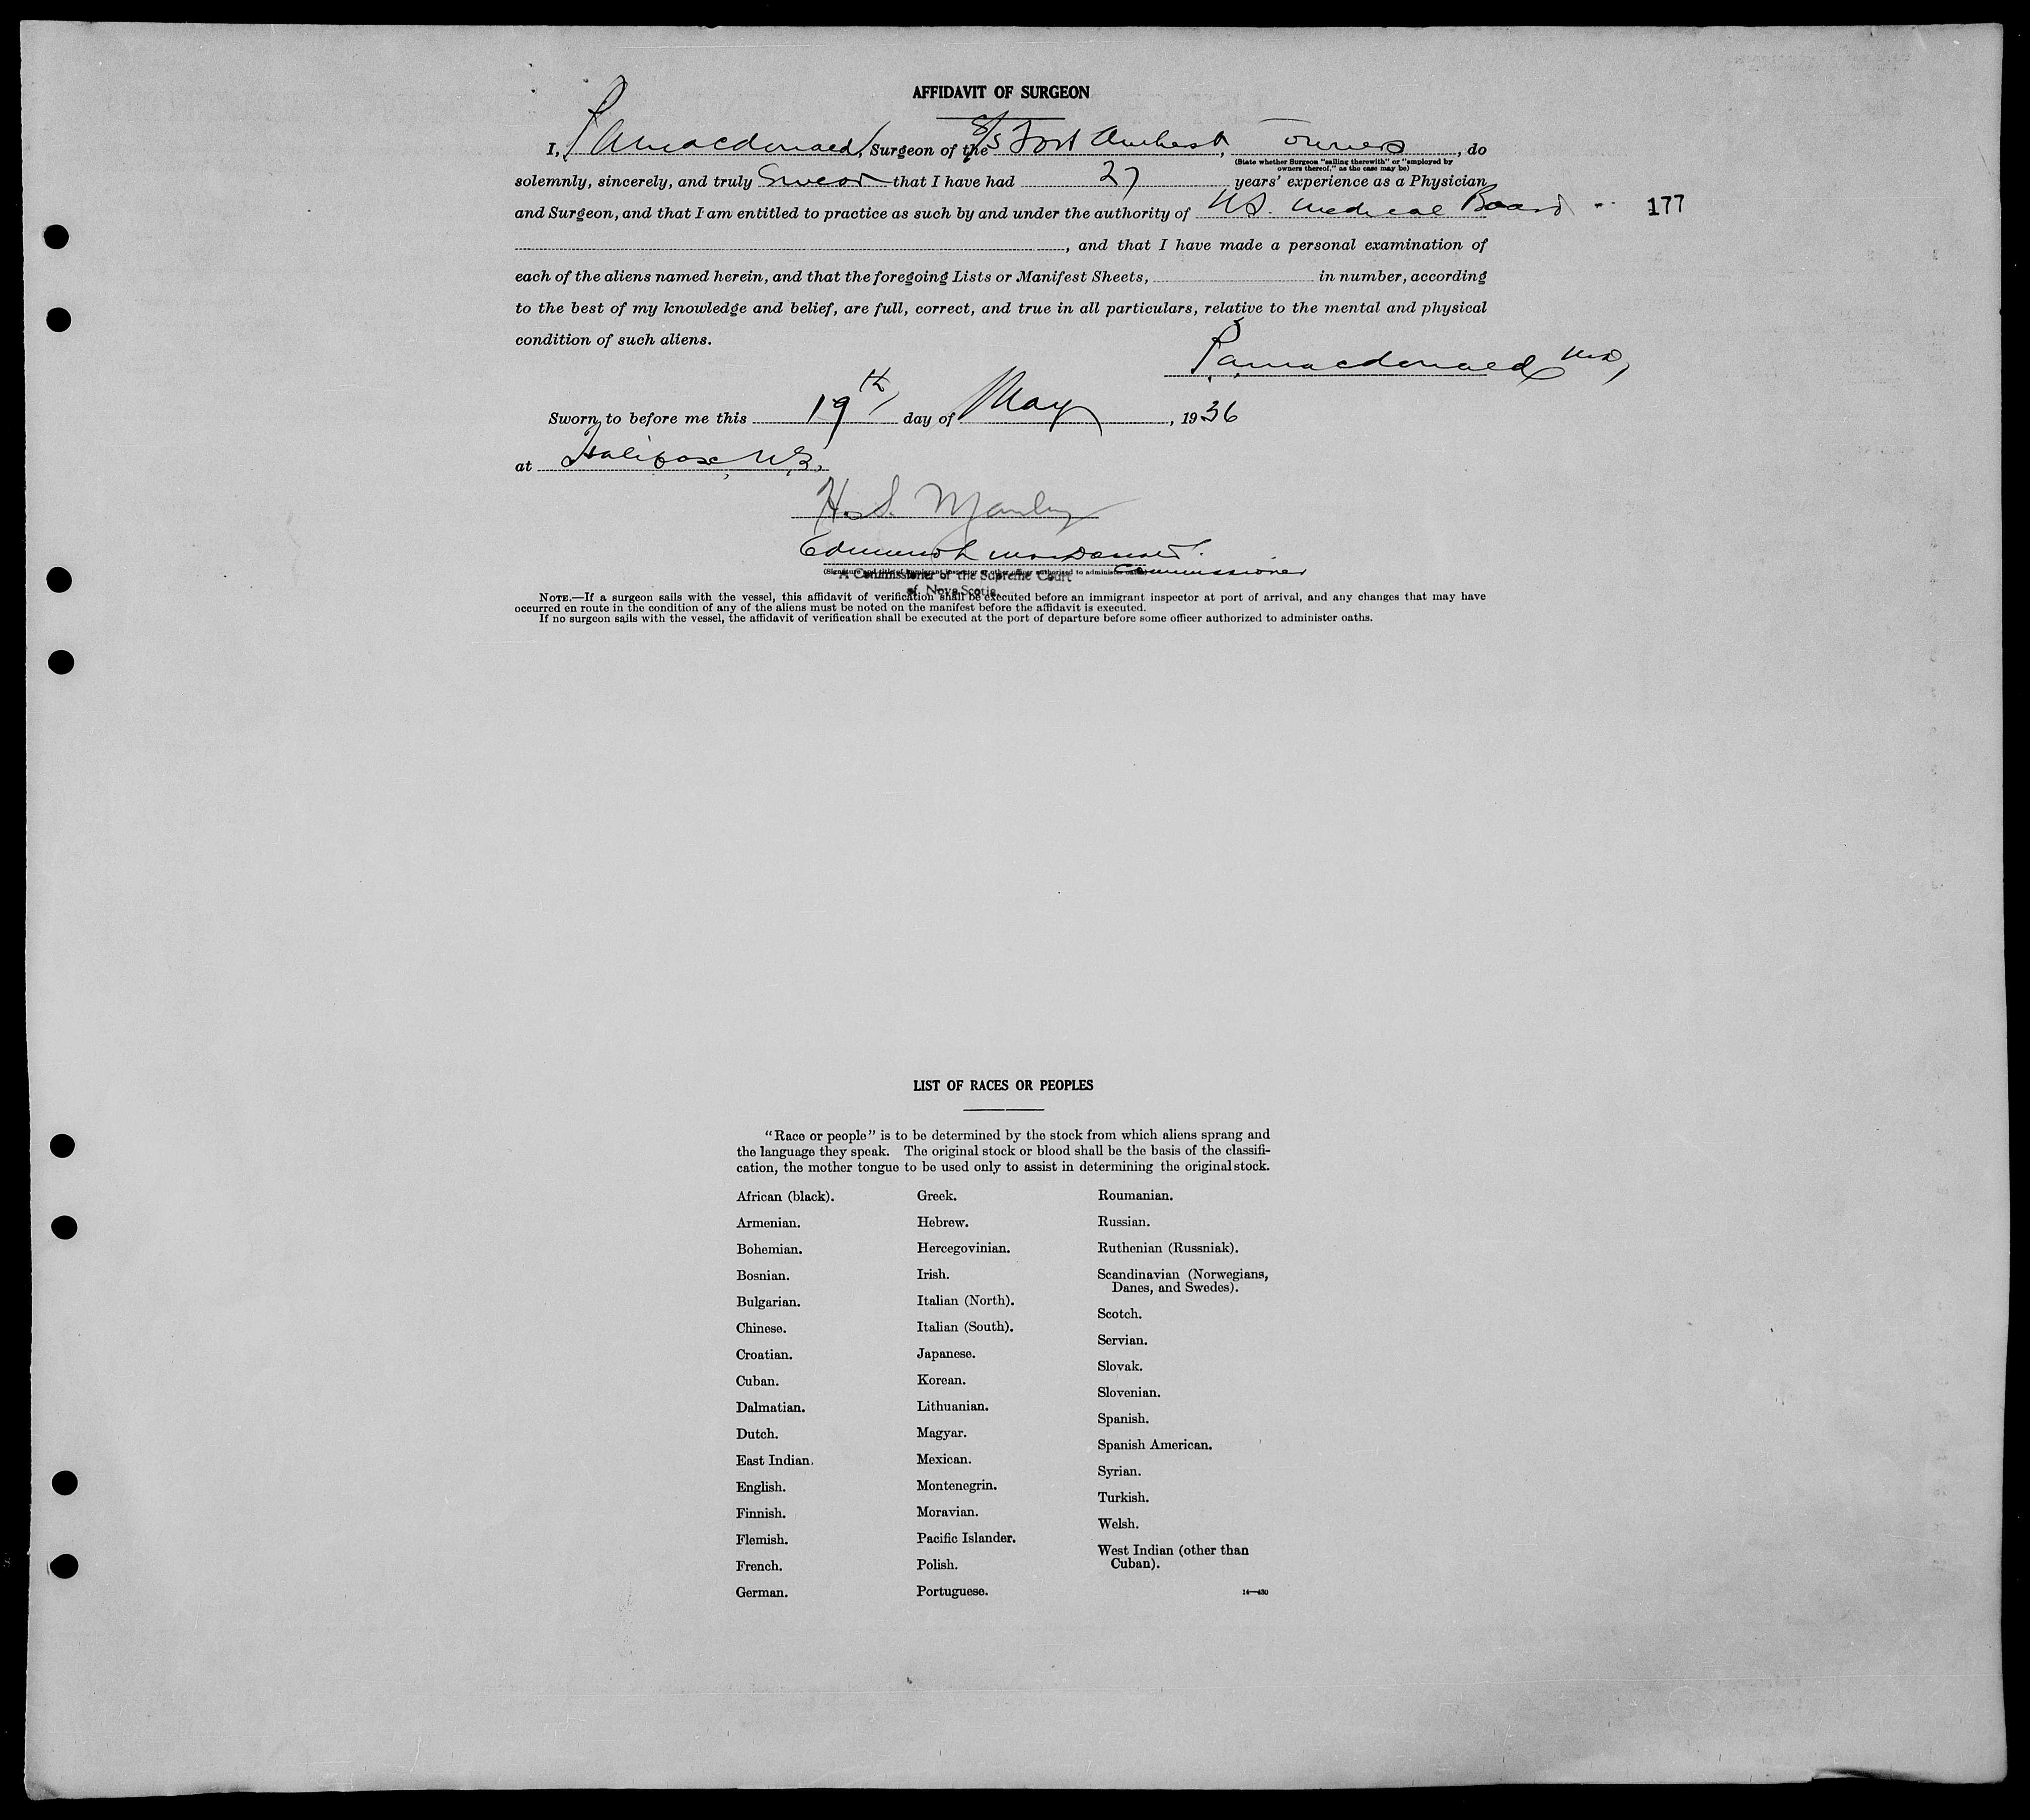 AFFIDAVIT OF SURGEON
I, P A Macdonald, Surgeon of the S/S Fort Amherst, owners, do
(State whether Surgeon "sailing therewith" or "employed by
owners thereof," as the case may be)
solemnly, sincerely, and truly Swear that I have had 27 years' experience as a Physician
and Surgeon, and that I am entitled to practice as such by and under the authority of N.S. Medical Board
177
, and that I have made a personal examination of
each of the aliens named herein, and that the foregoing Lists or Manifest Sheets, in number, according
to the best of my knowledge and belief, are full, correct, and true in all particulars, relative to the mental and physical
condition of such aliens.
P.A. Macdonald MD,
Sworn to before me this 19th day of May, 1936
at Halifax, N.S.
H. S.
Edmund MacDonald
Commissioner
(Signature and title of immigrant inspector or other officer authorized to administer oaths)
A Commissioner of the Supreme Court
of Nova Scotia
NOTE.—If a surgeon sails with the vessel, this affidavit of verification shall be executed before an immigrant inspector at port of arrival, and any changes that may have
occurred en route in the condition of any of the aliens must be noted on the manifest before the affidavit is executed.
If no surgeon sails with the vessel, the affidavit of verification shall be executed at the port of departure before some officer authorized to administer oaths.
LIST OF RACES OR PEOPLES
"Race or people" is to be determined by the stock from which aliens sprang and
the language they speak. The original stock or blood shall be the basis of the classifi-
cation, the mother tongue to be used only to assist in determining the original stock.
African (black).
Armenian.
Bohemian.
Bosnian.
Bulgarian.
Chinese.
Croatian.
Cuban.
Dalmatian.
Dutch.
East Indian.
English.
Finnish.
Flemish.
French.
German.
Greek.
Hebrew.
Hercegovinian.
Irish.
Italian (North).
Italian (South).
Japanese.
Korean.
Lithuanian.
Magyar.
Mexican.
Montenegrin.
Moravian.
Pacific Islander.
Polish.
Portuguese.
Roumanian.
Russian.
Ruthenian (Russniak).
Scandinavian (Norwegians,
Danes, and Swedes).
Scotch.
Servian.
Slovak.
Slovenian.
Spanish.
Spanish American.
Syrian.
Turkish.
Welsh.
West Indian (other than
Cuban).
14—430